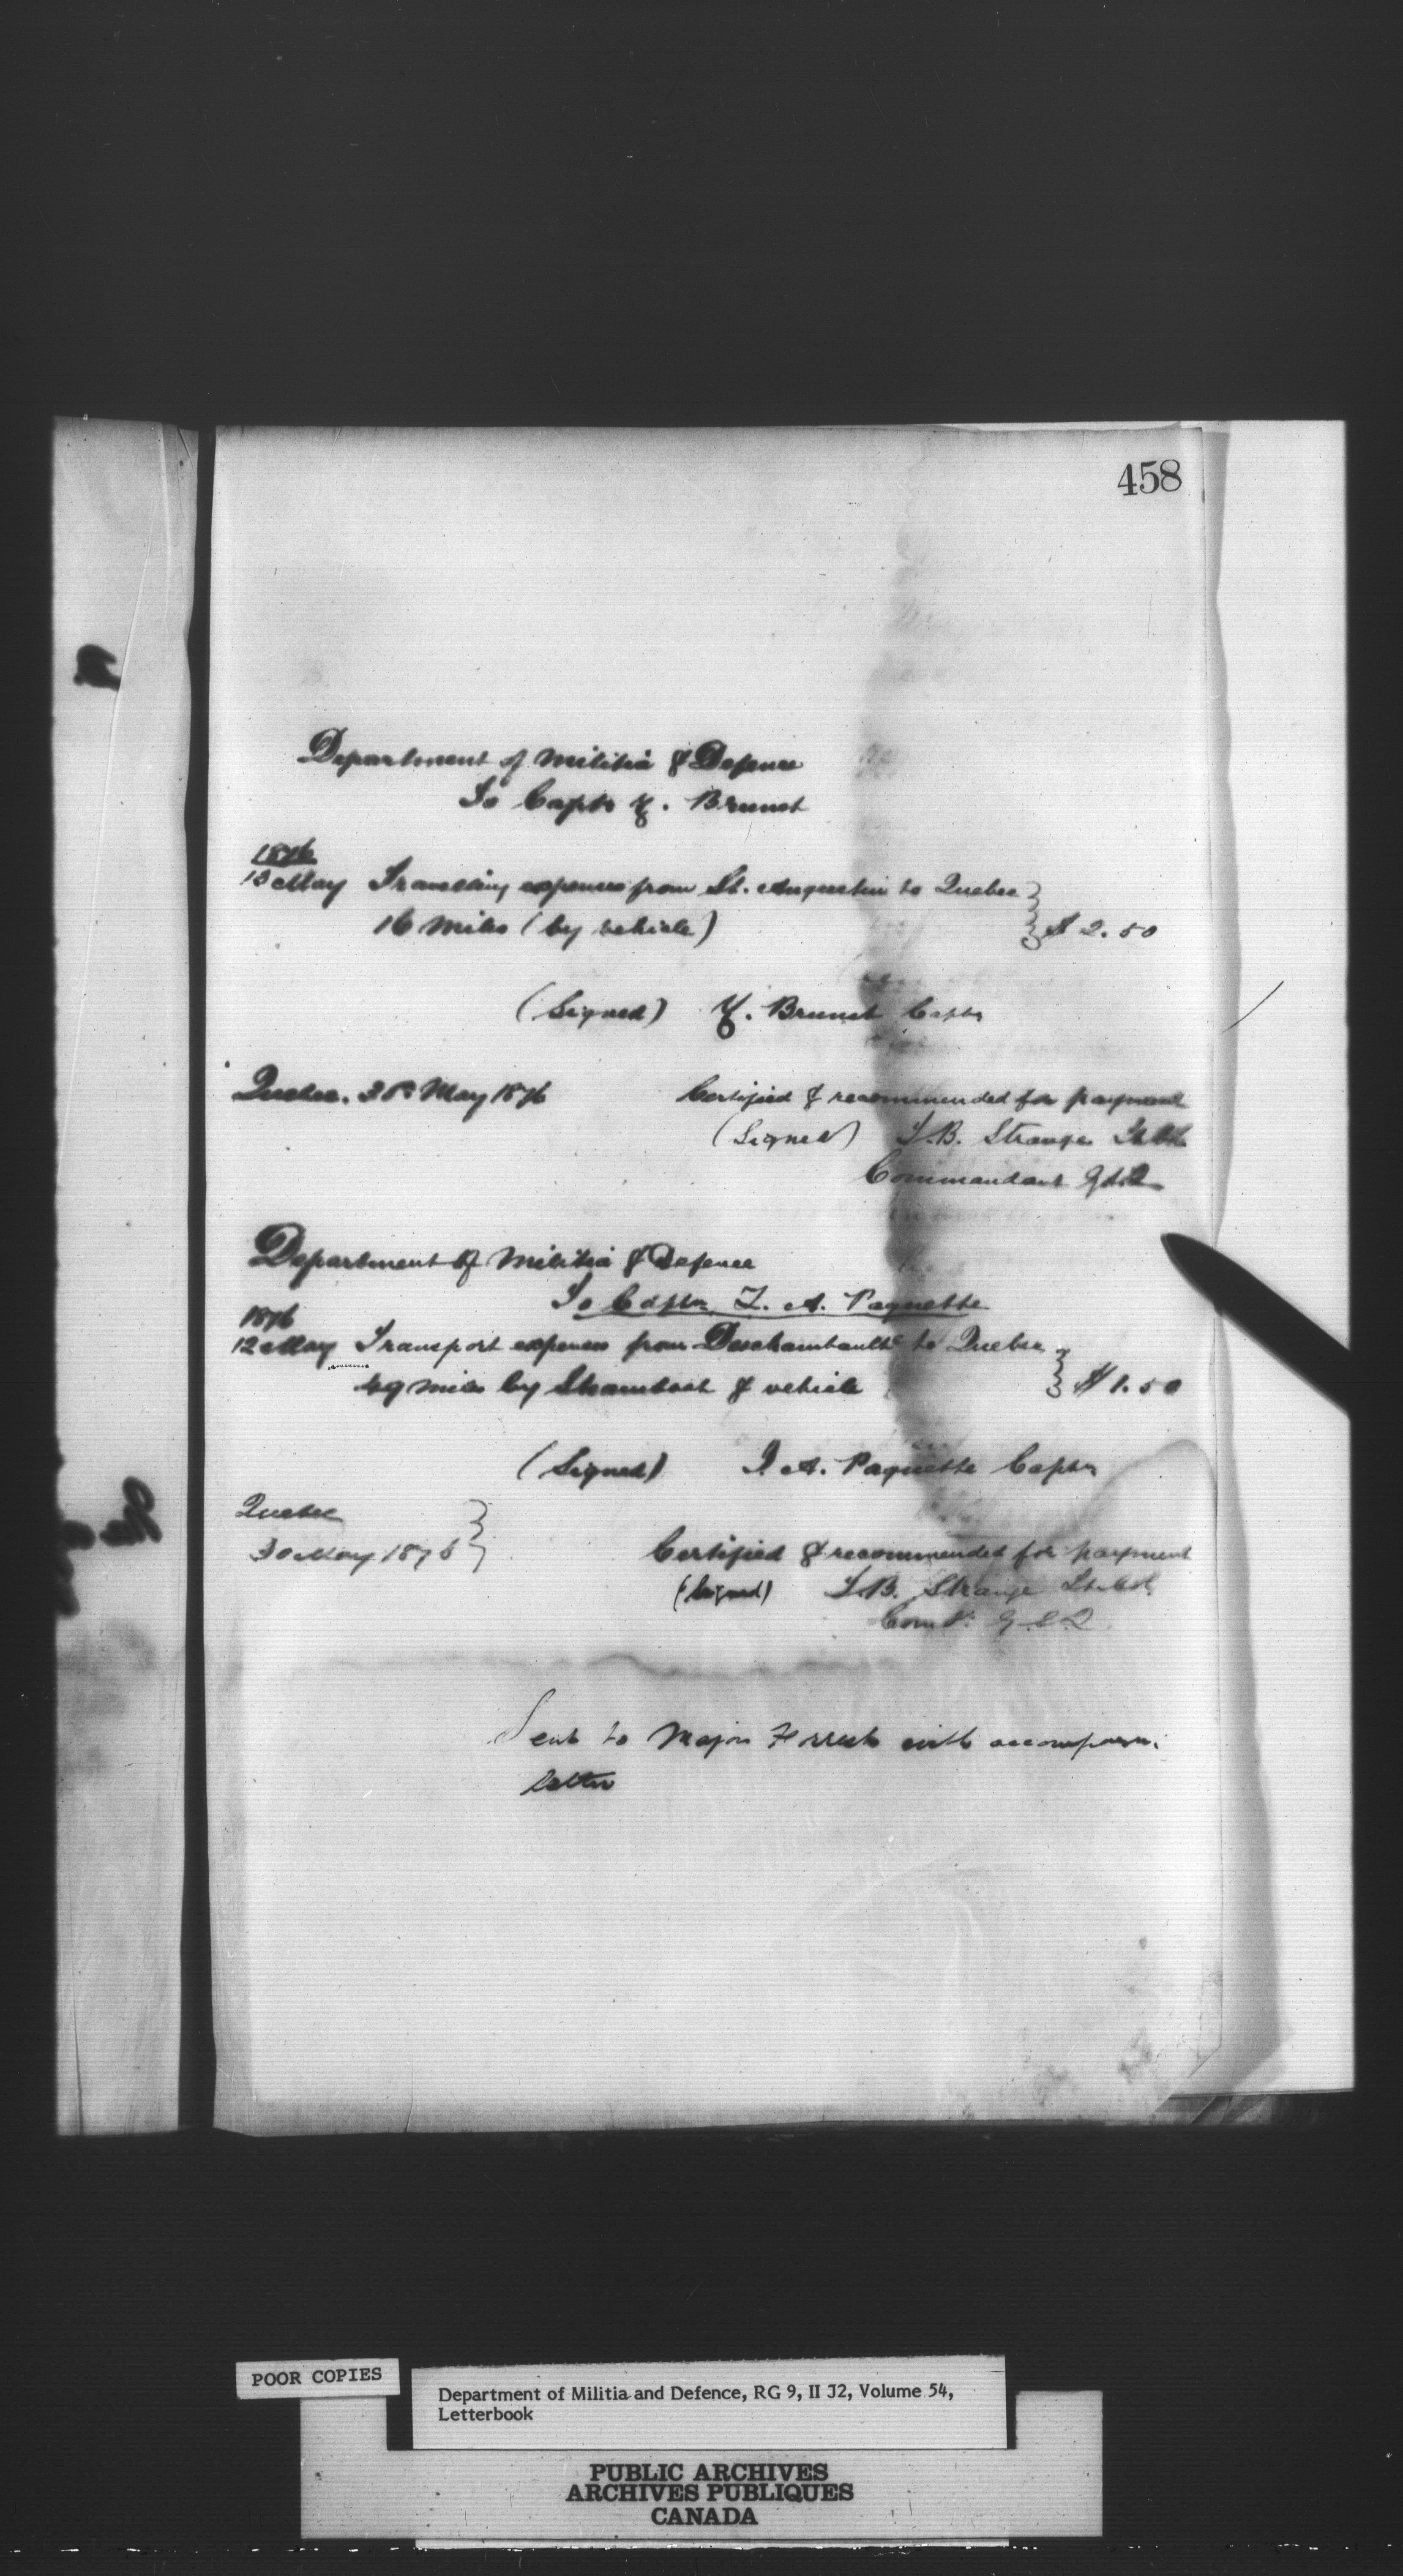 458
Department of Militia & Defence
To Captn Y. Brunet
1876
13 May Travelling expenses from St. Augustin to Quebec
16 Miles (by vehicle) $ 2.50
(Signed) Y. Brunet Captn
Quebec. 30th May 1876
Certified & recommended for payment
(Signed) T.B. Strange Lt Col
Commandant
Department of Militia & Defence
To Captn A. Paquette
1876
12 May Transport expenses from Deschambault to Quebec
49 miles by Steamboat & vehicle $ 1.50
(Signed) A. Paquette Captn
Quebec
30 May 1876
Certified & recommended for payment
(Signed) T.B. Strange Lt. Col.
Comdt.
Sent to Major Forrest with accompany.
letter
POOR COPIES
Department of Militia and Defence, RG 9, II J2, Volume 54,
Letterbook
PUBLIC ARCHIVES
ARCHIVES PUBLIQUES
CANADA